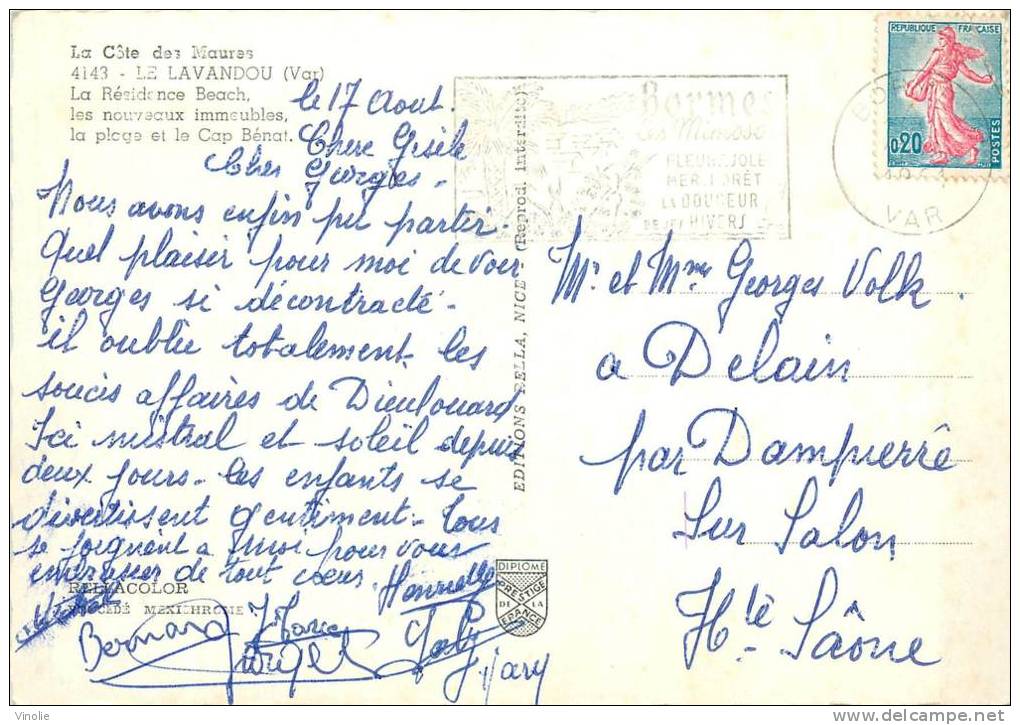 La Côte des Maures
4143 - LE LAVANDOU (Var)
La Résidence Beach,
les nouveaux immeubles,
la plage et le Cap Bénat.
le 17 Aout.
Chere Gisèle
Cher Georges -
Nous avons enfin pu partir.
Quel plaisir pour moi de voir
Georges si décontracté -
il oublie totalement les
soucis affaires de Dieulouard
Ici mistral et soleil depuis
deux jours - les enfants se
divertissent gentiment - Tous
se joignent a moi pour vous
embrasser de tout coeur. Henriette
RELLACOLOR
PROCÉDÉ MEXICHROME
Bernard
J. Marie
Gary
EDITIONS RELLA, NICE - (Reprod. interdite)
DIPLOME
PRESTIGE
DE LA
FRANCE
Bormes
les Mimosas
MER FORÊT
LA DOUCEUR
DE SES HIVERS
VAR
REPUBLIQUE FRANÇAISE
0,20
POSTES
Mr et Mme Georges Volk.
a Delain
par Dampierre
Sur Salon
Hte Saône
Vinolie
www.delcampe.net